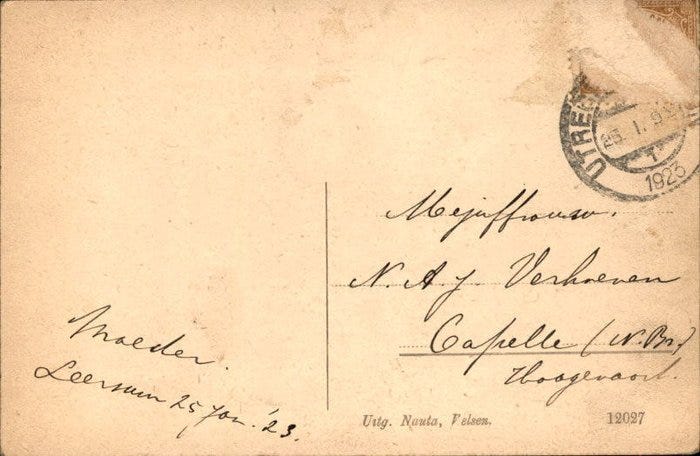 UTRECHT
25.1.9
1923
Mejuffrouw.
N. A. J. Verhoeven
Capelle (N. Br.)
Hoogevaart.
Moeder.
Leersum 25 Jan. '23.
Uitg. Nauta, Velsen.
12027